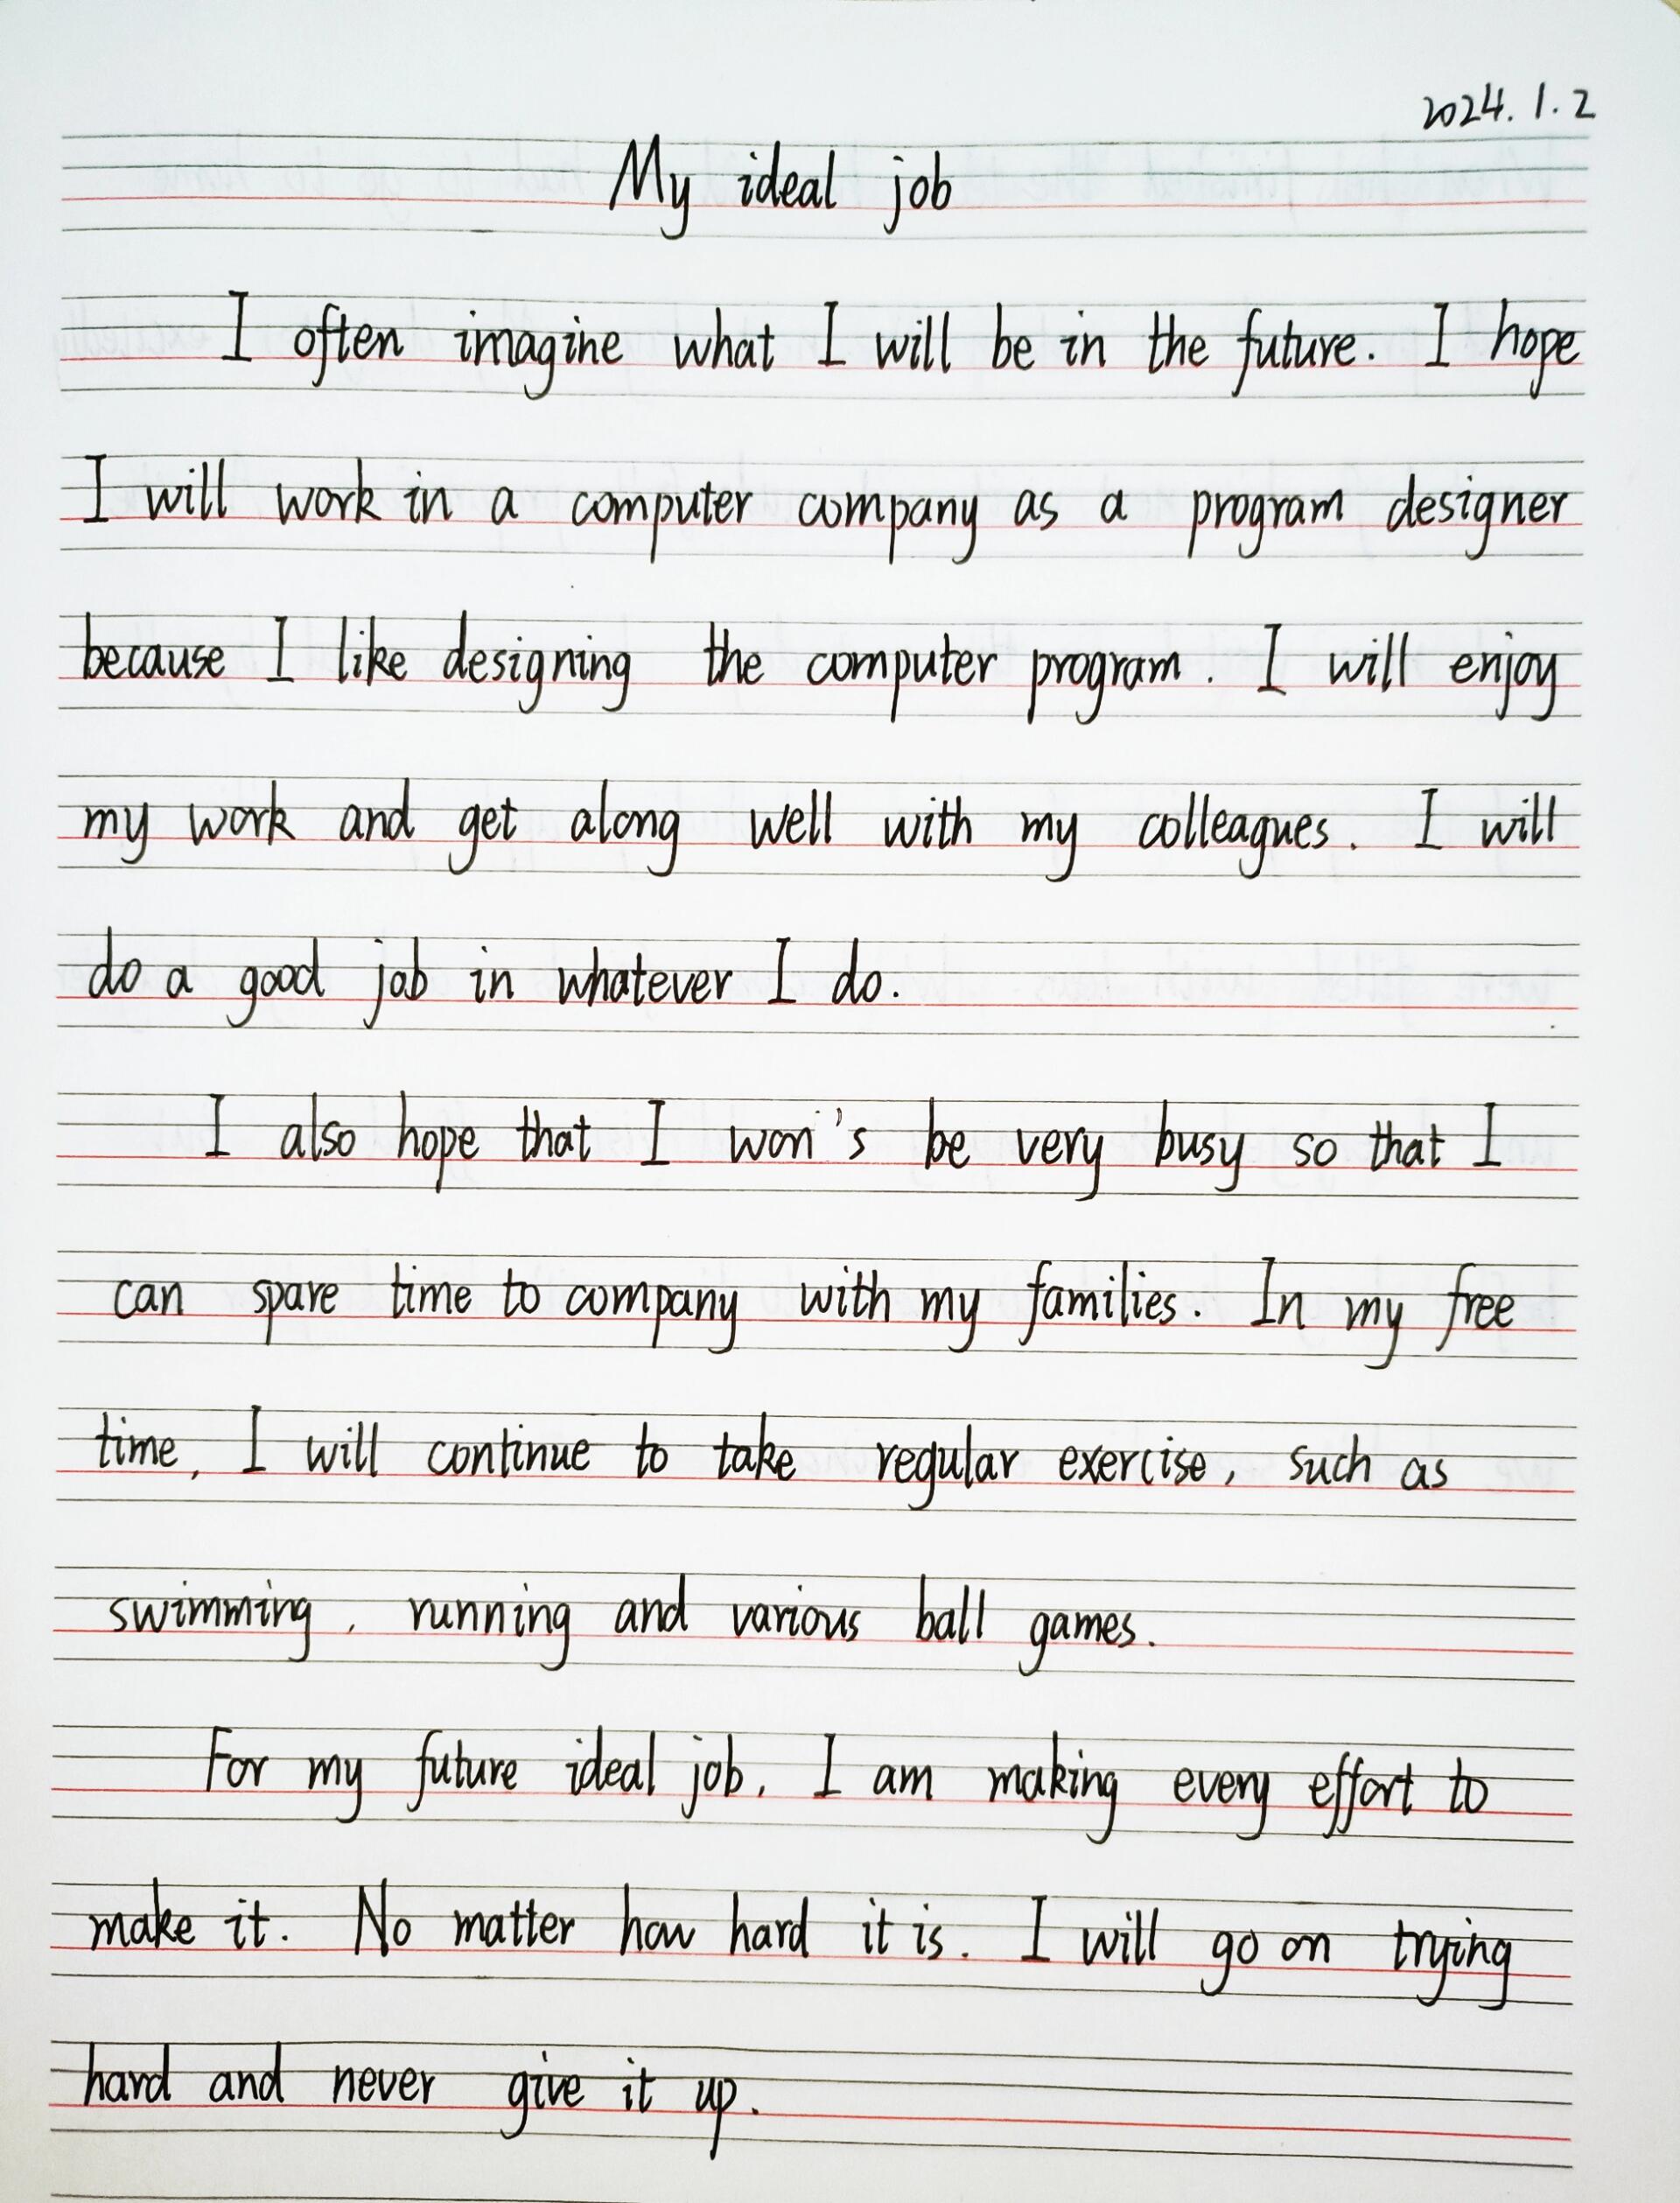 2024.1.2
My ideal job
I often imagine what I will be in the future. I hope
I will work in a computer company as a program designer
because I like designing the computer program. I will enjoy
my work and get along well with my colleagues. I will
do a good job in whatever I do.
I also hope that I won's be very busy so that I
can spare time to company with my families. In my free
time, I will continue to take regular exercise, such as
swimming, running and various ball games.
For my future ideal job, I am making every effort to
make it. No matter how hard it is. I will go on trying
hard and never give it up.